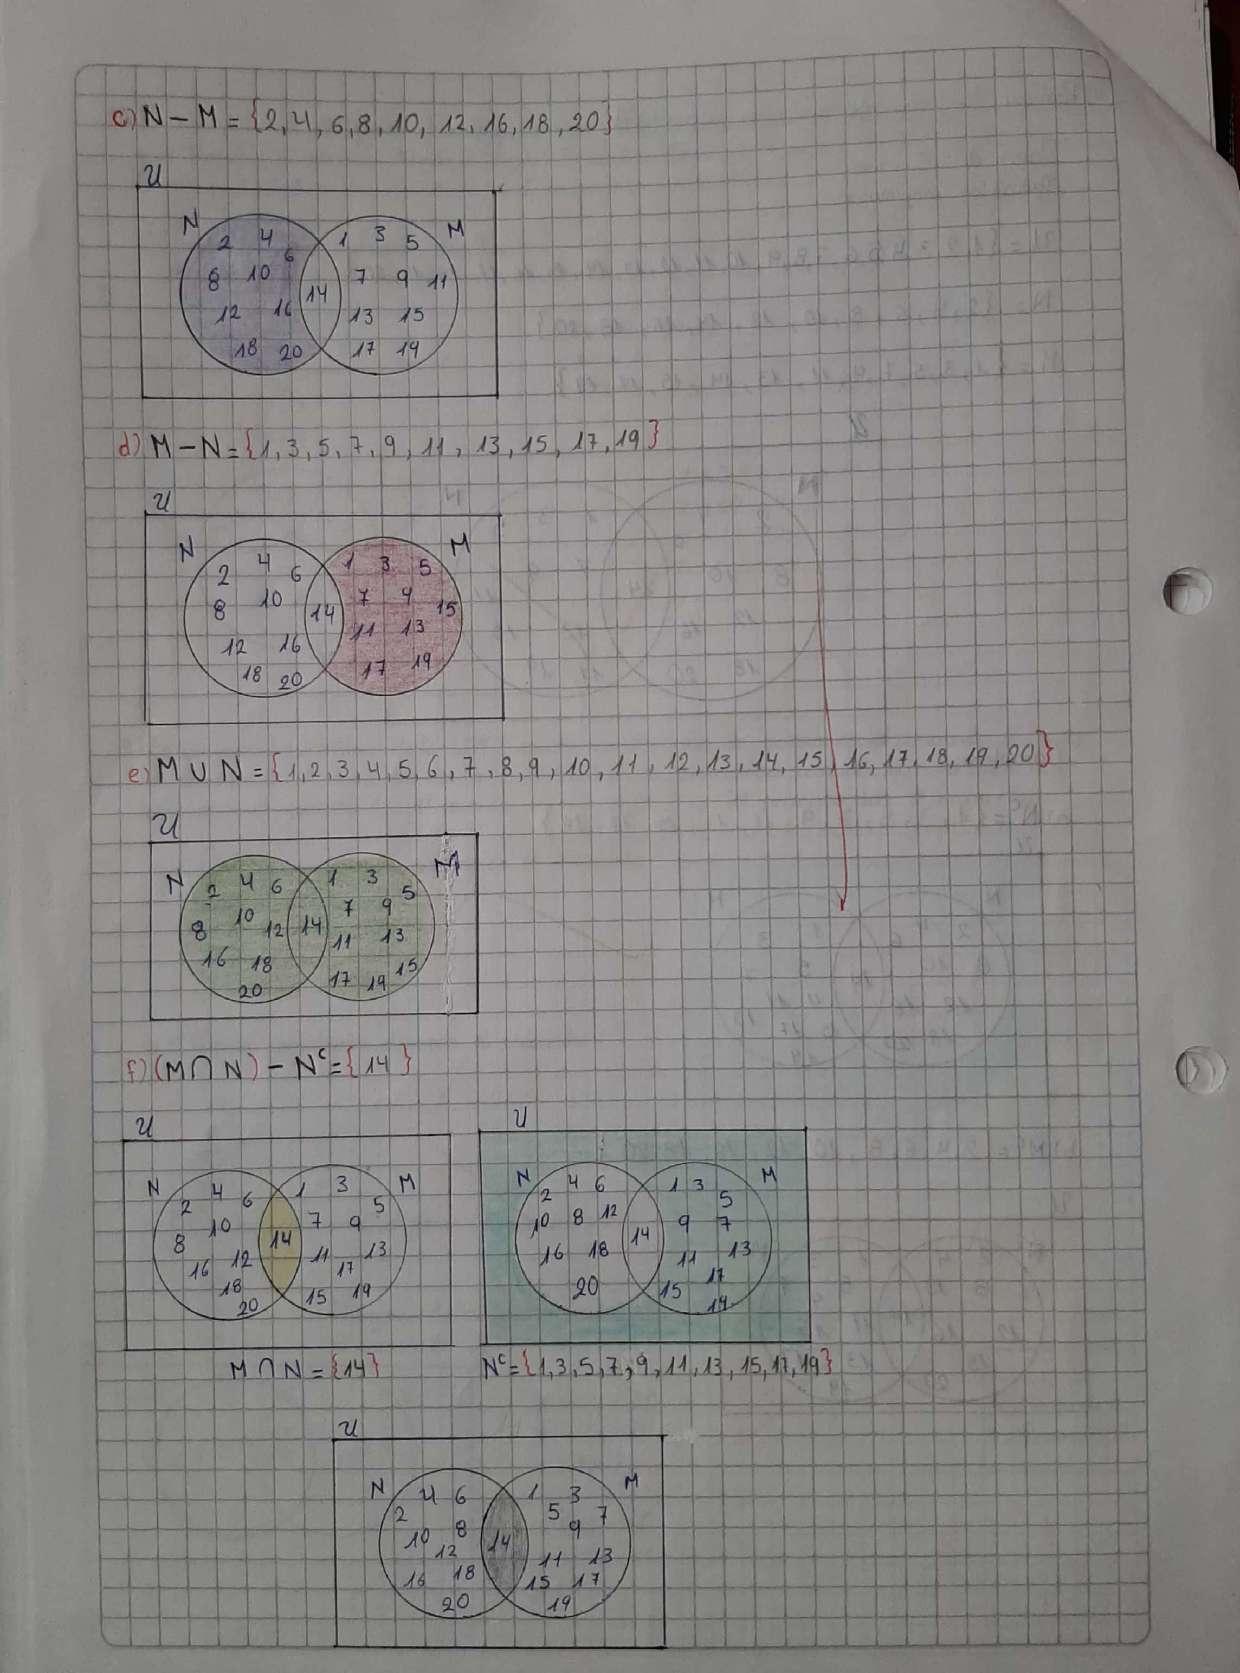 c) N - M = {2, 4, 6, 8, 10, 12, 16, 18, 20}
U
N M
2 4 6 1 3 5
8 10 14 7 9 11
12 16 13 15
18 20 17 19
d) M - N = {1, 3, 5, 7, 9, 11, 13, 15, 17, 19}
U
N M
2 4 6 1 3 5
8 10 14 7 9 15
12 16 11 13
18 20 17 19
e) M ∪ N = {1, 2, 3, 4, 5, 6, 7, 8, 9, 10, 11, 12, 13, 14, 15, 16, 17, 18, 19, 20}
U
N M
2 4 6 1 3 5
8 10 12 14 7 9
16 18 11 13
20 17 19 15
f) (M ∩ N) - Nᶜ = {14}
U
N M
2 4 6 1 3 5
8 10 14 7 9
16 12 11 13
18 17
20 15 19
M ∩ N = {14}
U
N M
2 4 6 1 3 5
10 8 12 14 9 7
16 18 11 13
20 15 17
19
Nᶜ = {1, 3, 5, 7, 9, 11, 13, 15, 17, 19}
U
N M
2 4 6 1 3
10 8 14 5 9 7
12 11 13
16 18 15 17
20 19